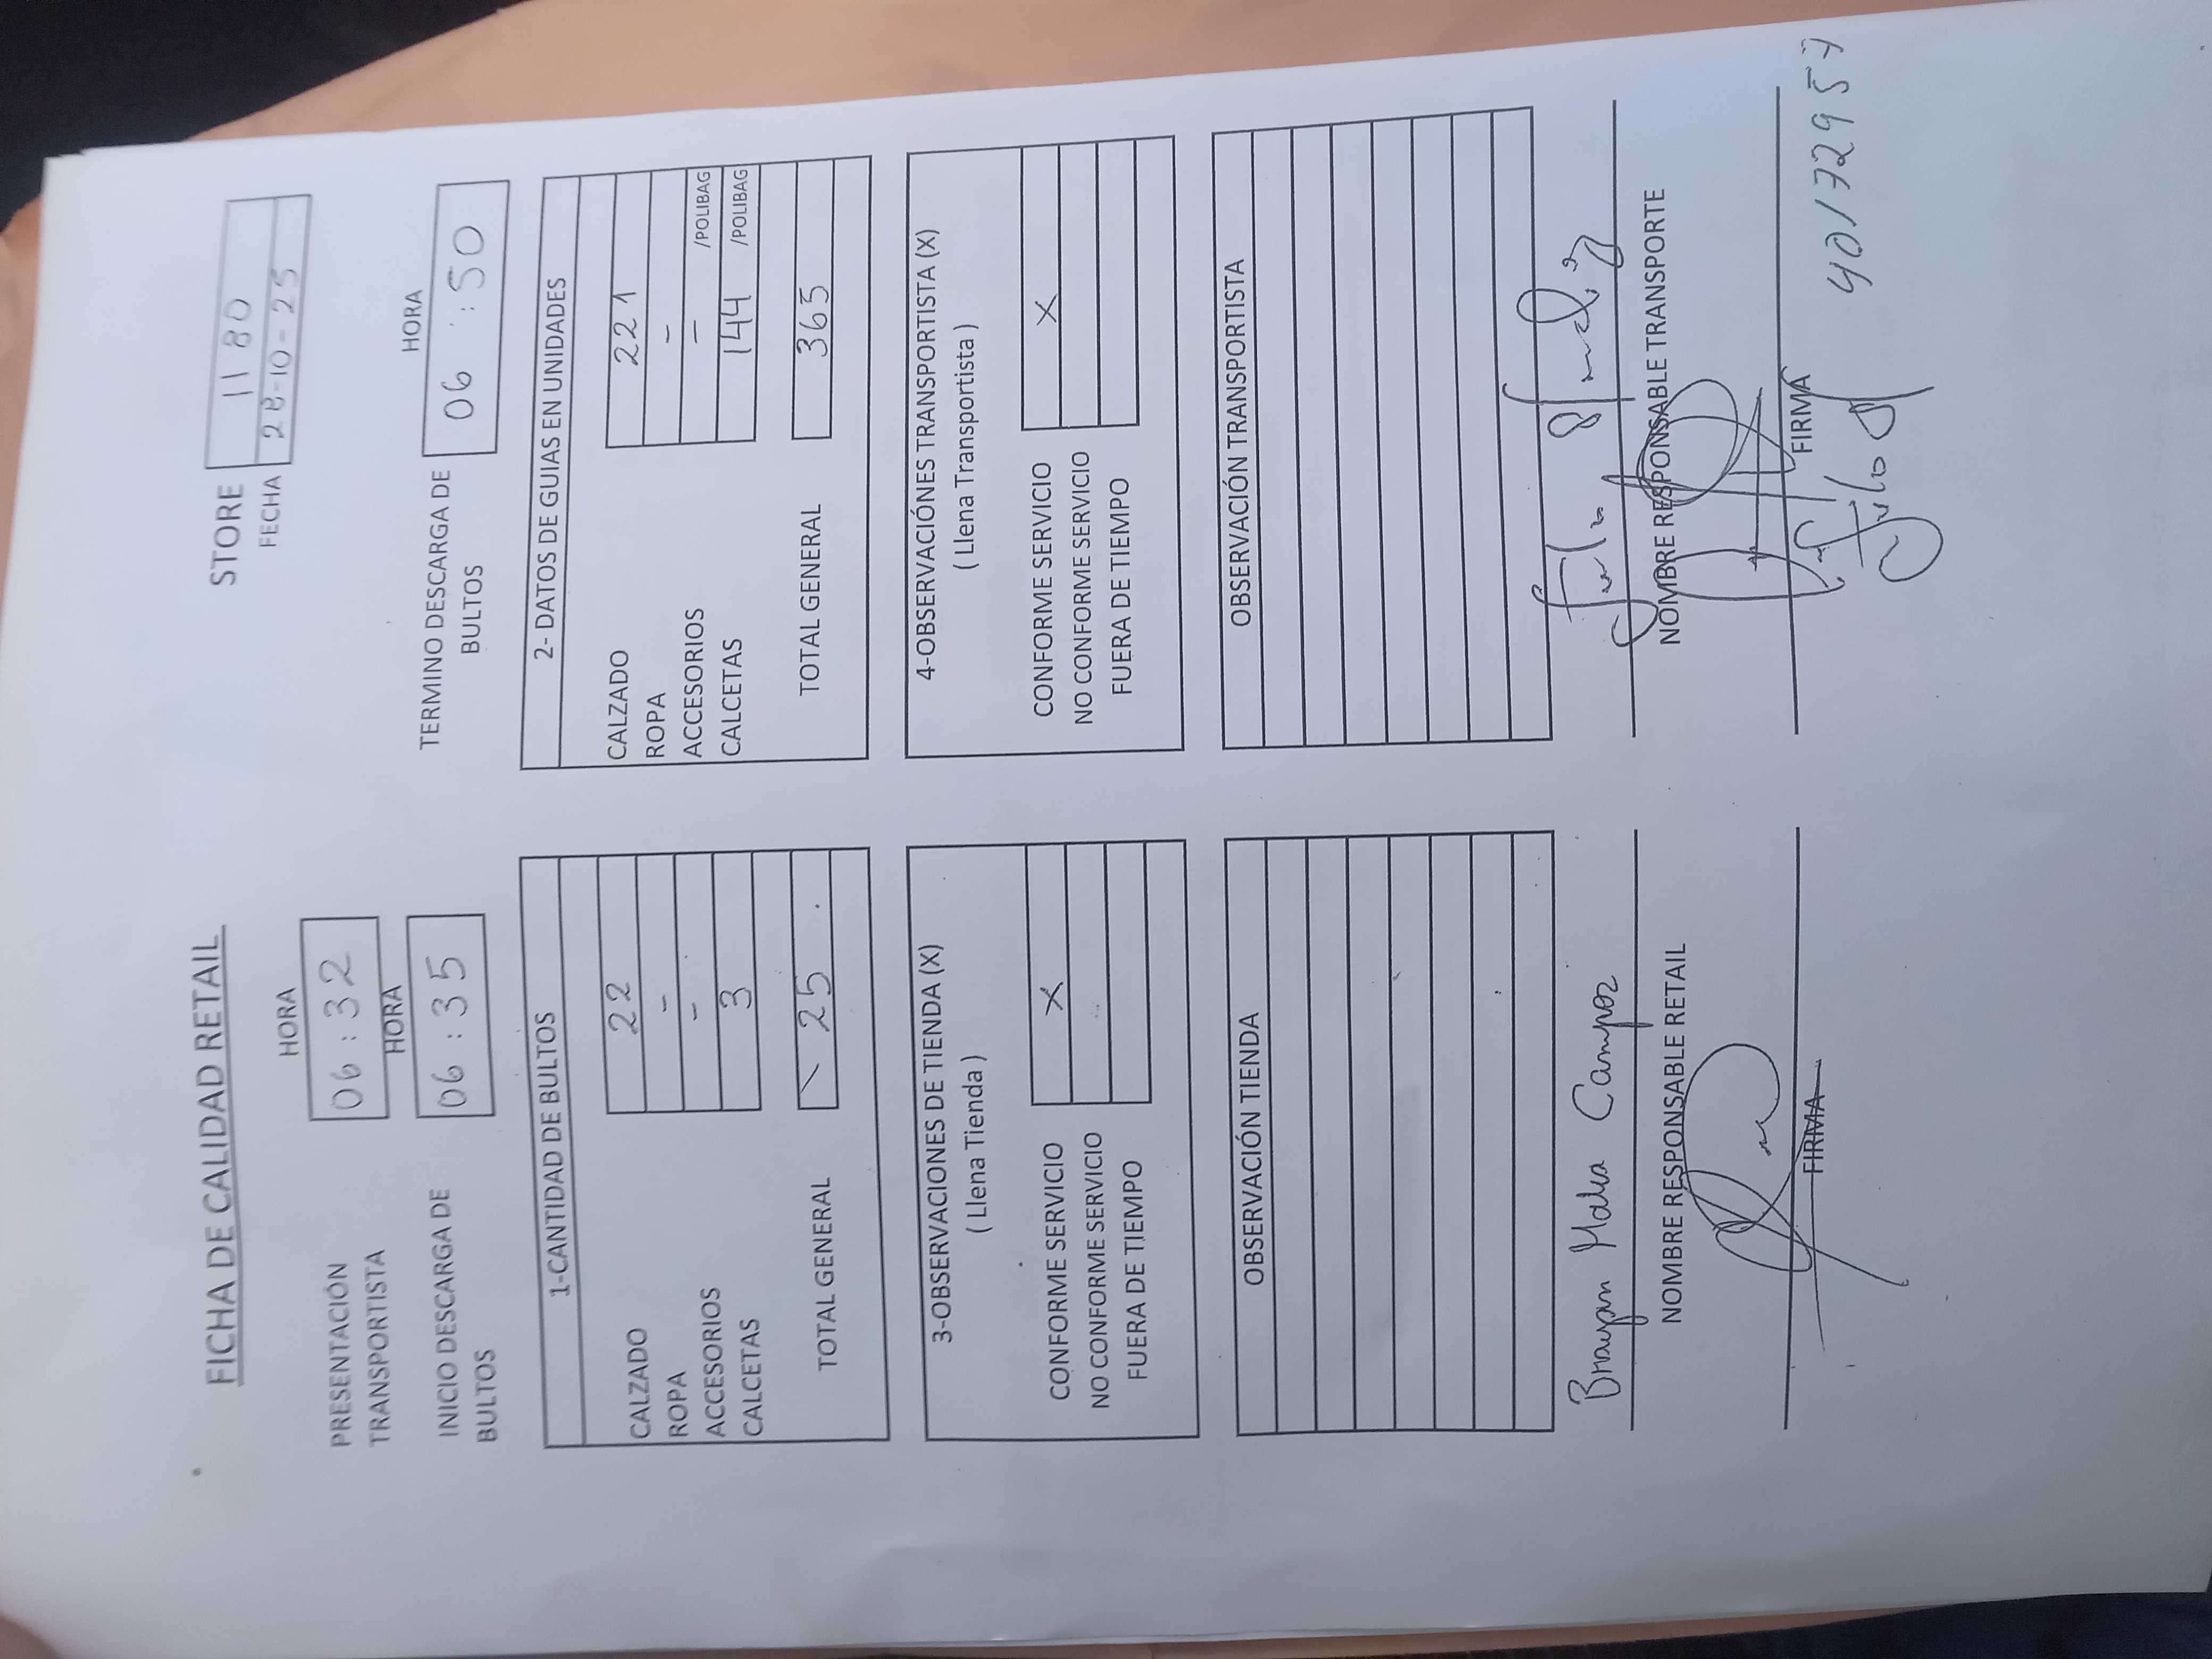 FICHA DE CALIDAD RETAIL
STORE 1180
FECHA 28-10-25
HORA
PRESENTACIÓN TRANSPORTISTA 06:32
HORA
INICIO DESCARGA DE BULTOS 06:35
HORA
TERMINO DESCARGA DE BULTOS 06:50
1-CANTIDAD DE BULTOS
CALZADO 22
ROPA -
ACCESORIOS -
CALCETAS 3
TOTAL GENERAL 25
2- DATOS DE GUIAS EN UNIDADES
CALZADO 221
ROPA -
ACCESORIOS - /POLIBAG
CALCETAS 144 /POLIBAG
TOTAL GENERAL 365
3-OBSERVACIONES DE TIENDA (X)
( Llena Tienda )
CONFORME SERVICIO X
NO CONFORME SERVICIO
FUERA DE TIEMPO
4-OBSERVACIÓNES TRANSPORTISTA (X)
( Llena Transportista )
CONFORME SERVICIO X
NO CONFORME SERVICIO
FUERA DE TIEMPO
OBSERVACIÓN TIENDA
OBSERVACIÓN TRANSPORTISTA
Brayan Campos
NOMBRE RESPONSABLE RETAIL
FIRMA
NOMBRE RESPONSABLE TRANSPORTE
FIRMA
40172957